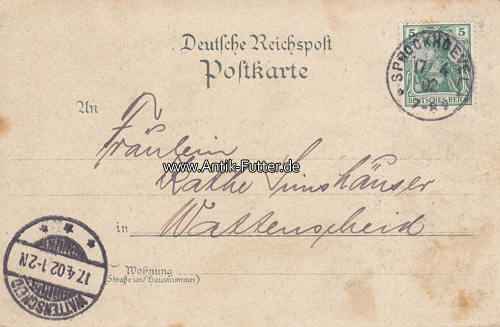 Deutsche Reichspost
Postkarte
5 5
DEUTSCHES REICH
SPROCKHOEVEL
17 4
02
An
Fräulein
www.Antik-Futter.de
Käthe
in Wattenscheid
WATTENSCHEID
17.4.02.1-2N
Wohnung
(Straße und Hausnummer)